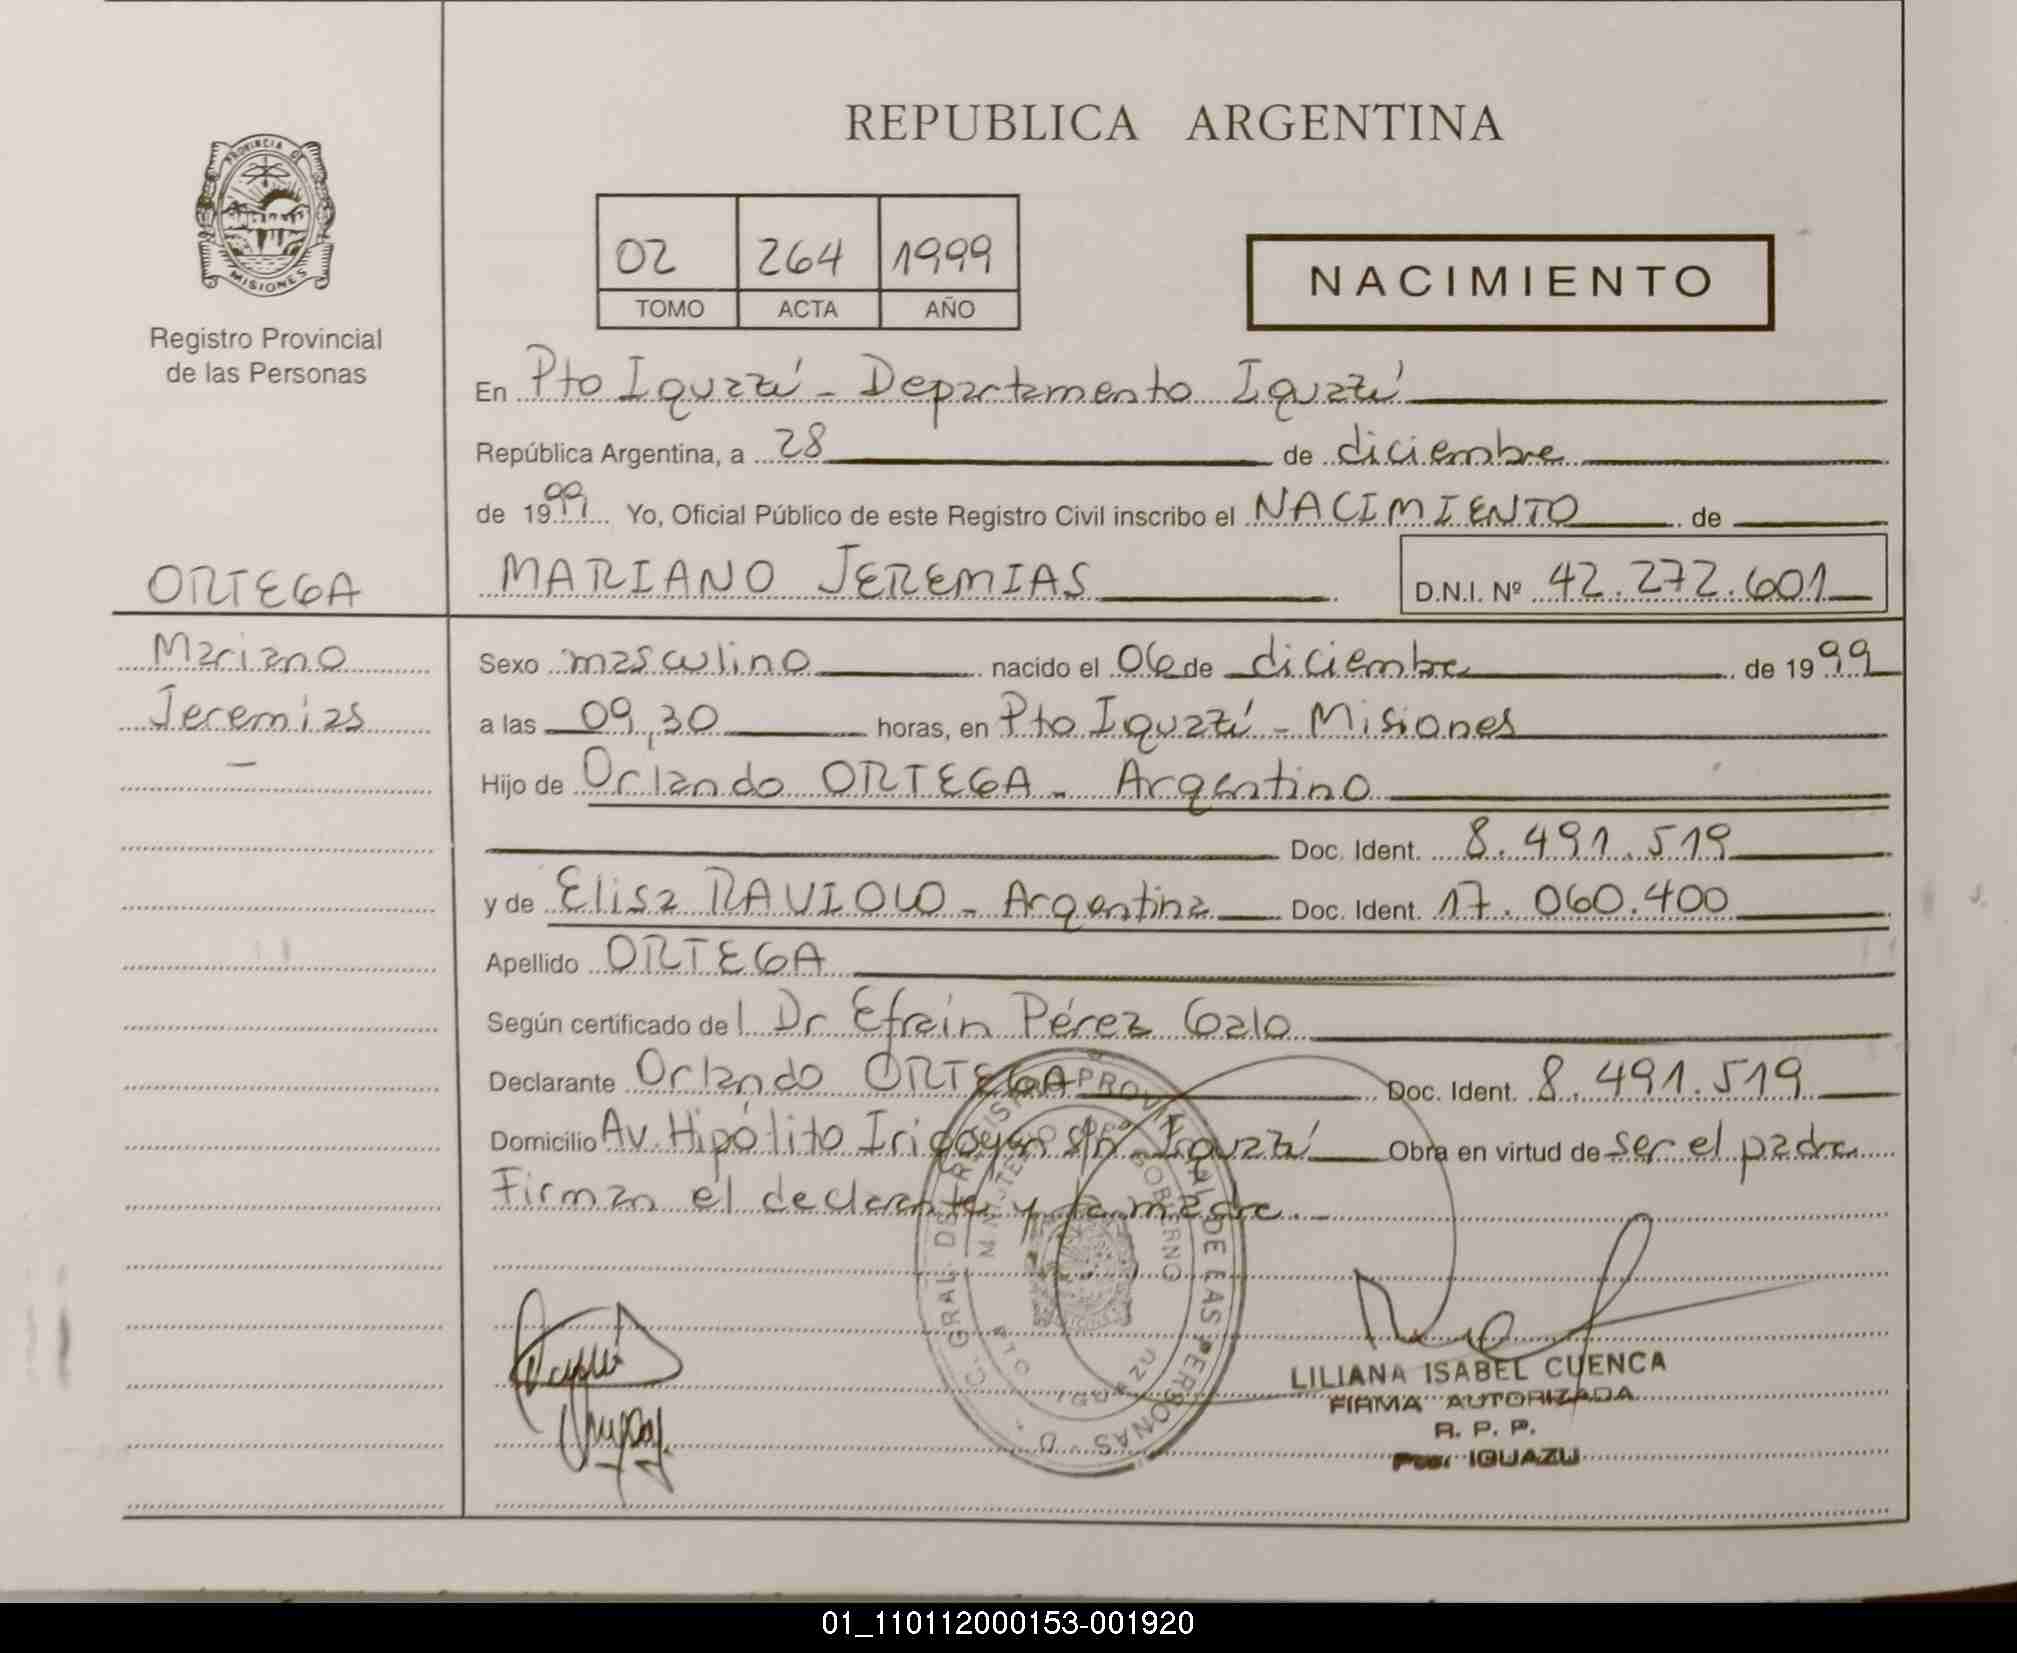 REPUBLICA ARGENTINA
PROVINCIA DE
MISIONES
Registro Provincial
de las Personas
02 264 1999
TOMO ACTA AÑO
NACIMIENTO
En Pto Iguazú - Departamento Iguazú
República Argentina, a 28 de diciembre
de 1999 Yo, Oficial Público de este Registro Civil inscribo el NACIMIENTO de
ORTEGA
MARIANO JEREMIAS D.N.I. Nº 42.272.601
Mariano
Jeremias
Sexo masculino nacido el 06 de diciembre de 1999
a las 09,30 horas, en Pto Iguazú - Misiones
Hijo de Orlando ORTEGA - Argentino
Doc. Ident. 8.491.519
y de Elisa RAVIOLO - Argentina Doc. Ident. 17.060.400
Apellido ORTEGA
Según certificado del Dr Efraín Pérez Galo
Declarante Orlando ORTEGA Doc. Ident. 8.491.519
Domicilio Av. Hipólito Irigoyen s/n Iguazú Obra en virtud de ser el padre
Firman el declarante y la madre.-
MINISTERIO DE GOBIERNO
PTO IGUAZU
LILIANA ISABEL CUENCA
FIRMA AUTORIZADA
R. P. P.
Pto. IGUAZU
01_110112000153-001920